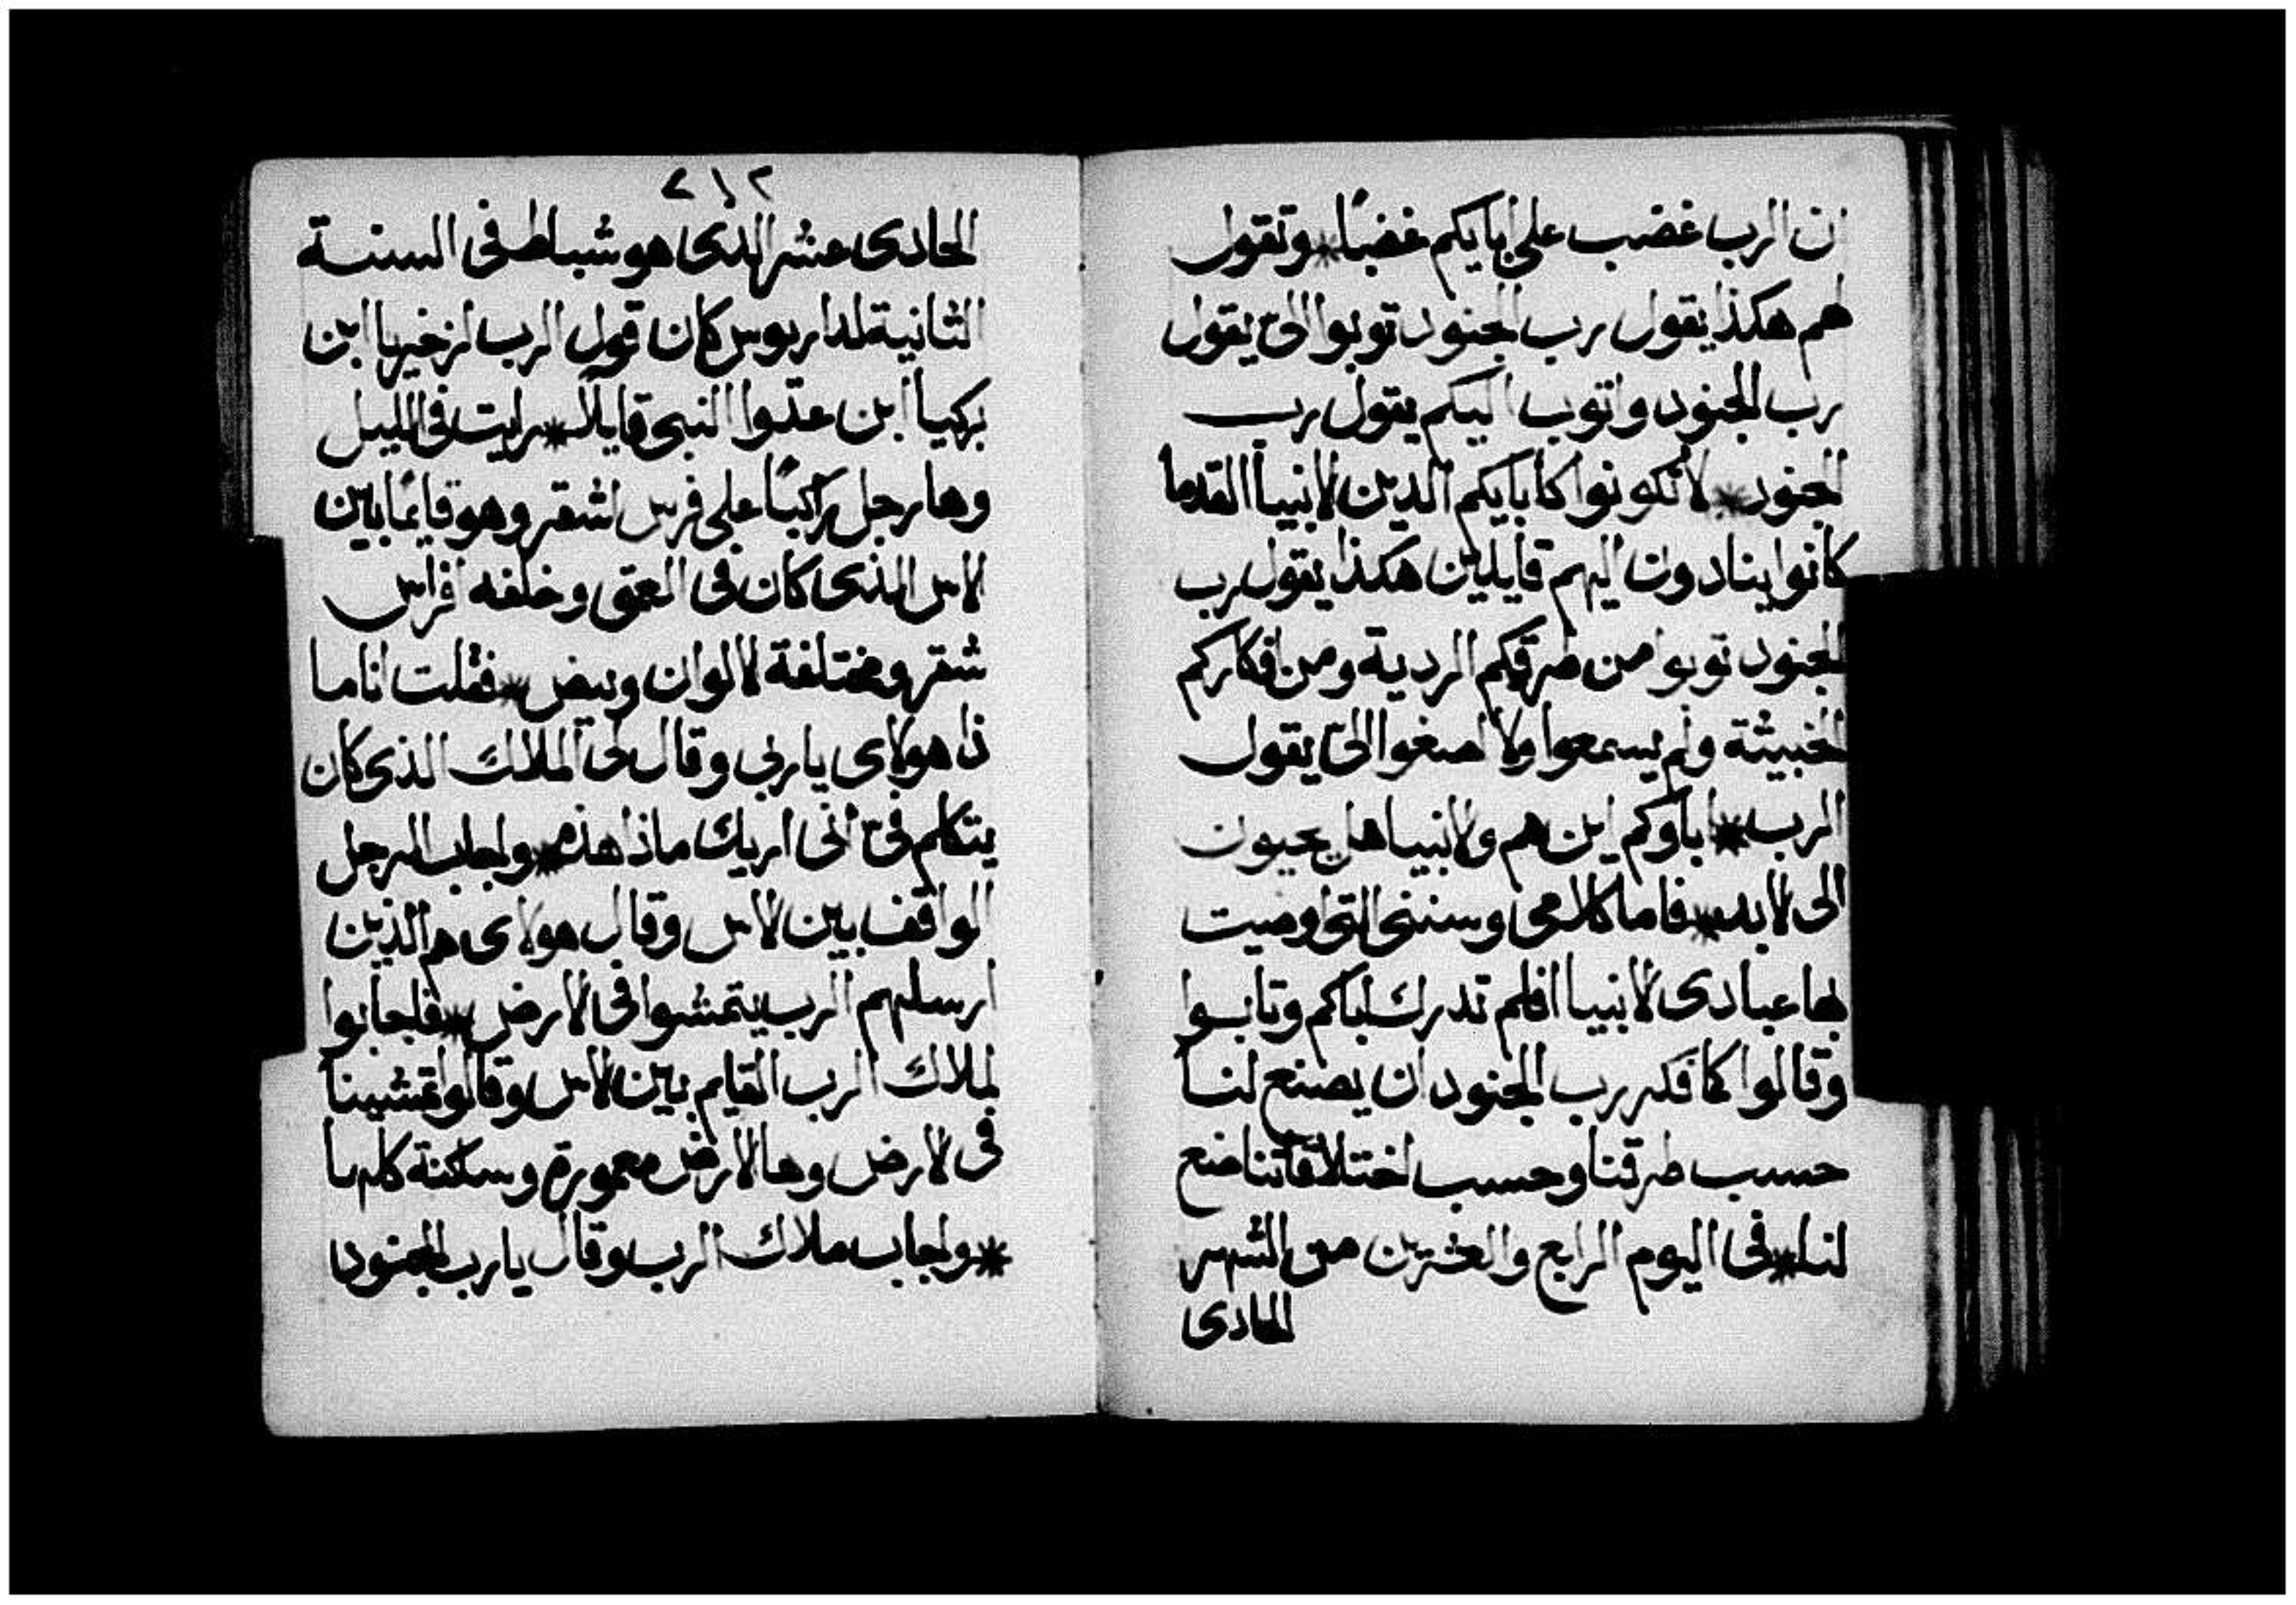 ان الرب غضب على ابايكم غضبًا * وتقول
لهم هكذا يقول رب الجنود توبوا اليّ يقول
رب الجنود واتوب اليكم يقول رب
الجنود * لا تكونوا كأبايكم الدين الانبيا القدما
كانوا ينادون اليهم قايلين هكذا يقول رب
الجنود توبوا من طرقكم الردية ومن افكاركم
الخبيثة ولم يسمعوا ولا اصغوا اليّ يقول
الرب * اباوكم اين هم والانبيا هل يحيون
الى الابد * فاما كلامى وسننى التى اوصيت
بها عبادى الانبيا افلم تدرك اباكم وتابوا
وقالوا كما فكر رب الجنود ان يصنع لنا
حسب طرقنا وحسب اختلاقاتنا صنع
لنا * فى اليوم الرابع والعشرين من الشهر
الحادى
٢١٢
الحادى عشر الدى هو شباط فى السنة
الثانية لداريوس كان قول الرب لزخريا ابن
بركيا ابن عدّوا النبى قايلاً * رايت فى الليل
وها رجل راكبًا على فرس اشقر وهو قايمًا بين
الاس الذى كان فى العمق وخلفه افراس
شقر ومختلفة الالوان وبيض * فقلت انا ما
ذا هولاى يا ربي وقال لى الملاك الذى كان
يتكلم فىّ انى اريك ماذا هذه * واجاب الرجل
الواقف بين الاس وقال هولاى هم الذين
ارسلهم الرب يتمشوا فى الارض * فاجابوا
لملاك الرب القايم بين الاس وقالوا تمشينا
فى الارض وها الارض معمورة وساكنة كلها
* واجاب ملاك الرب وقال يا رب الجنود